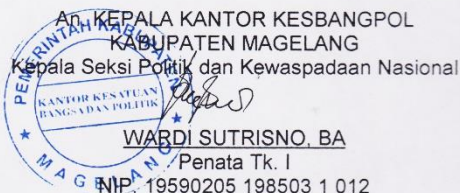 An. KEPALA KANTOR KESBANGPOL
KABUPATEN MAGELANG
Kepala Seksi Politik dan Kewaspadaan Nasional
PEMERINTAH KABUPATEN
KANTOR KESATUAN
BANGSA DAN POLITIK
MAGELANG
WARDI SUTRISNO, BA
Penata Tk. I
NIP. 19590205 198503 1 012